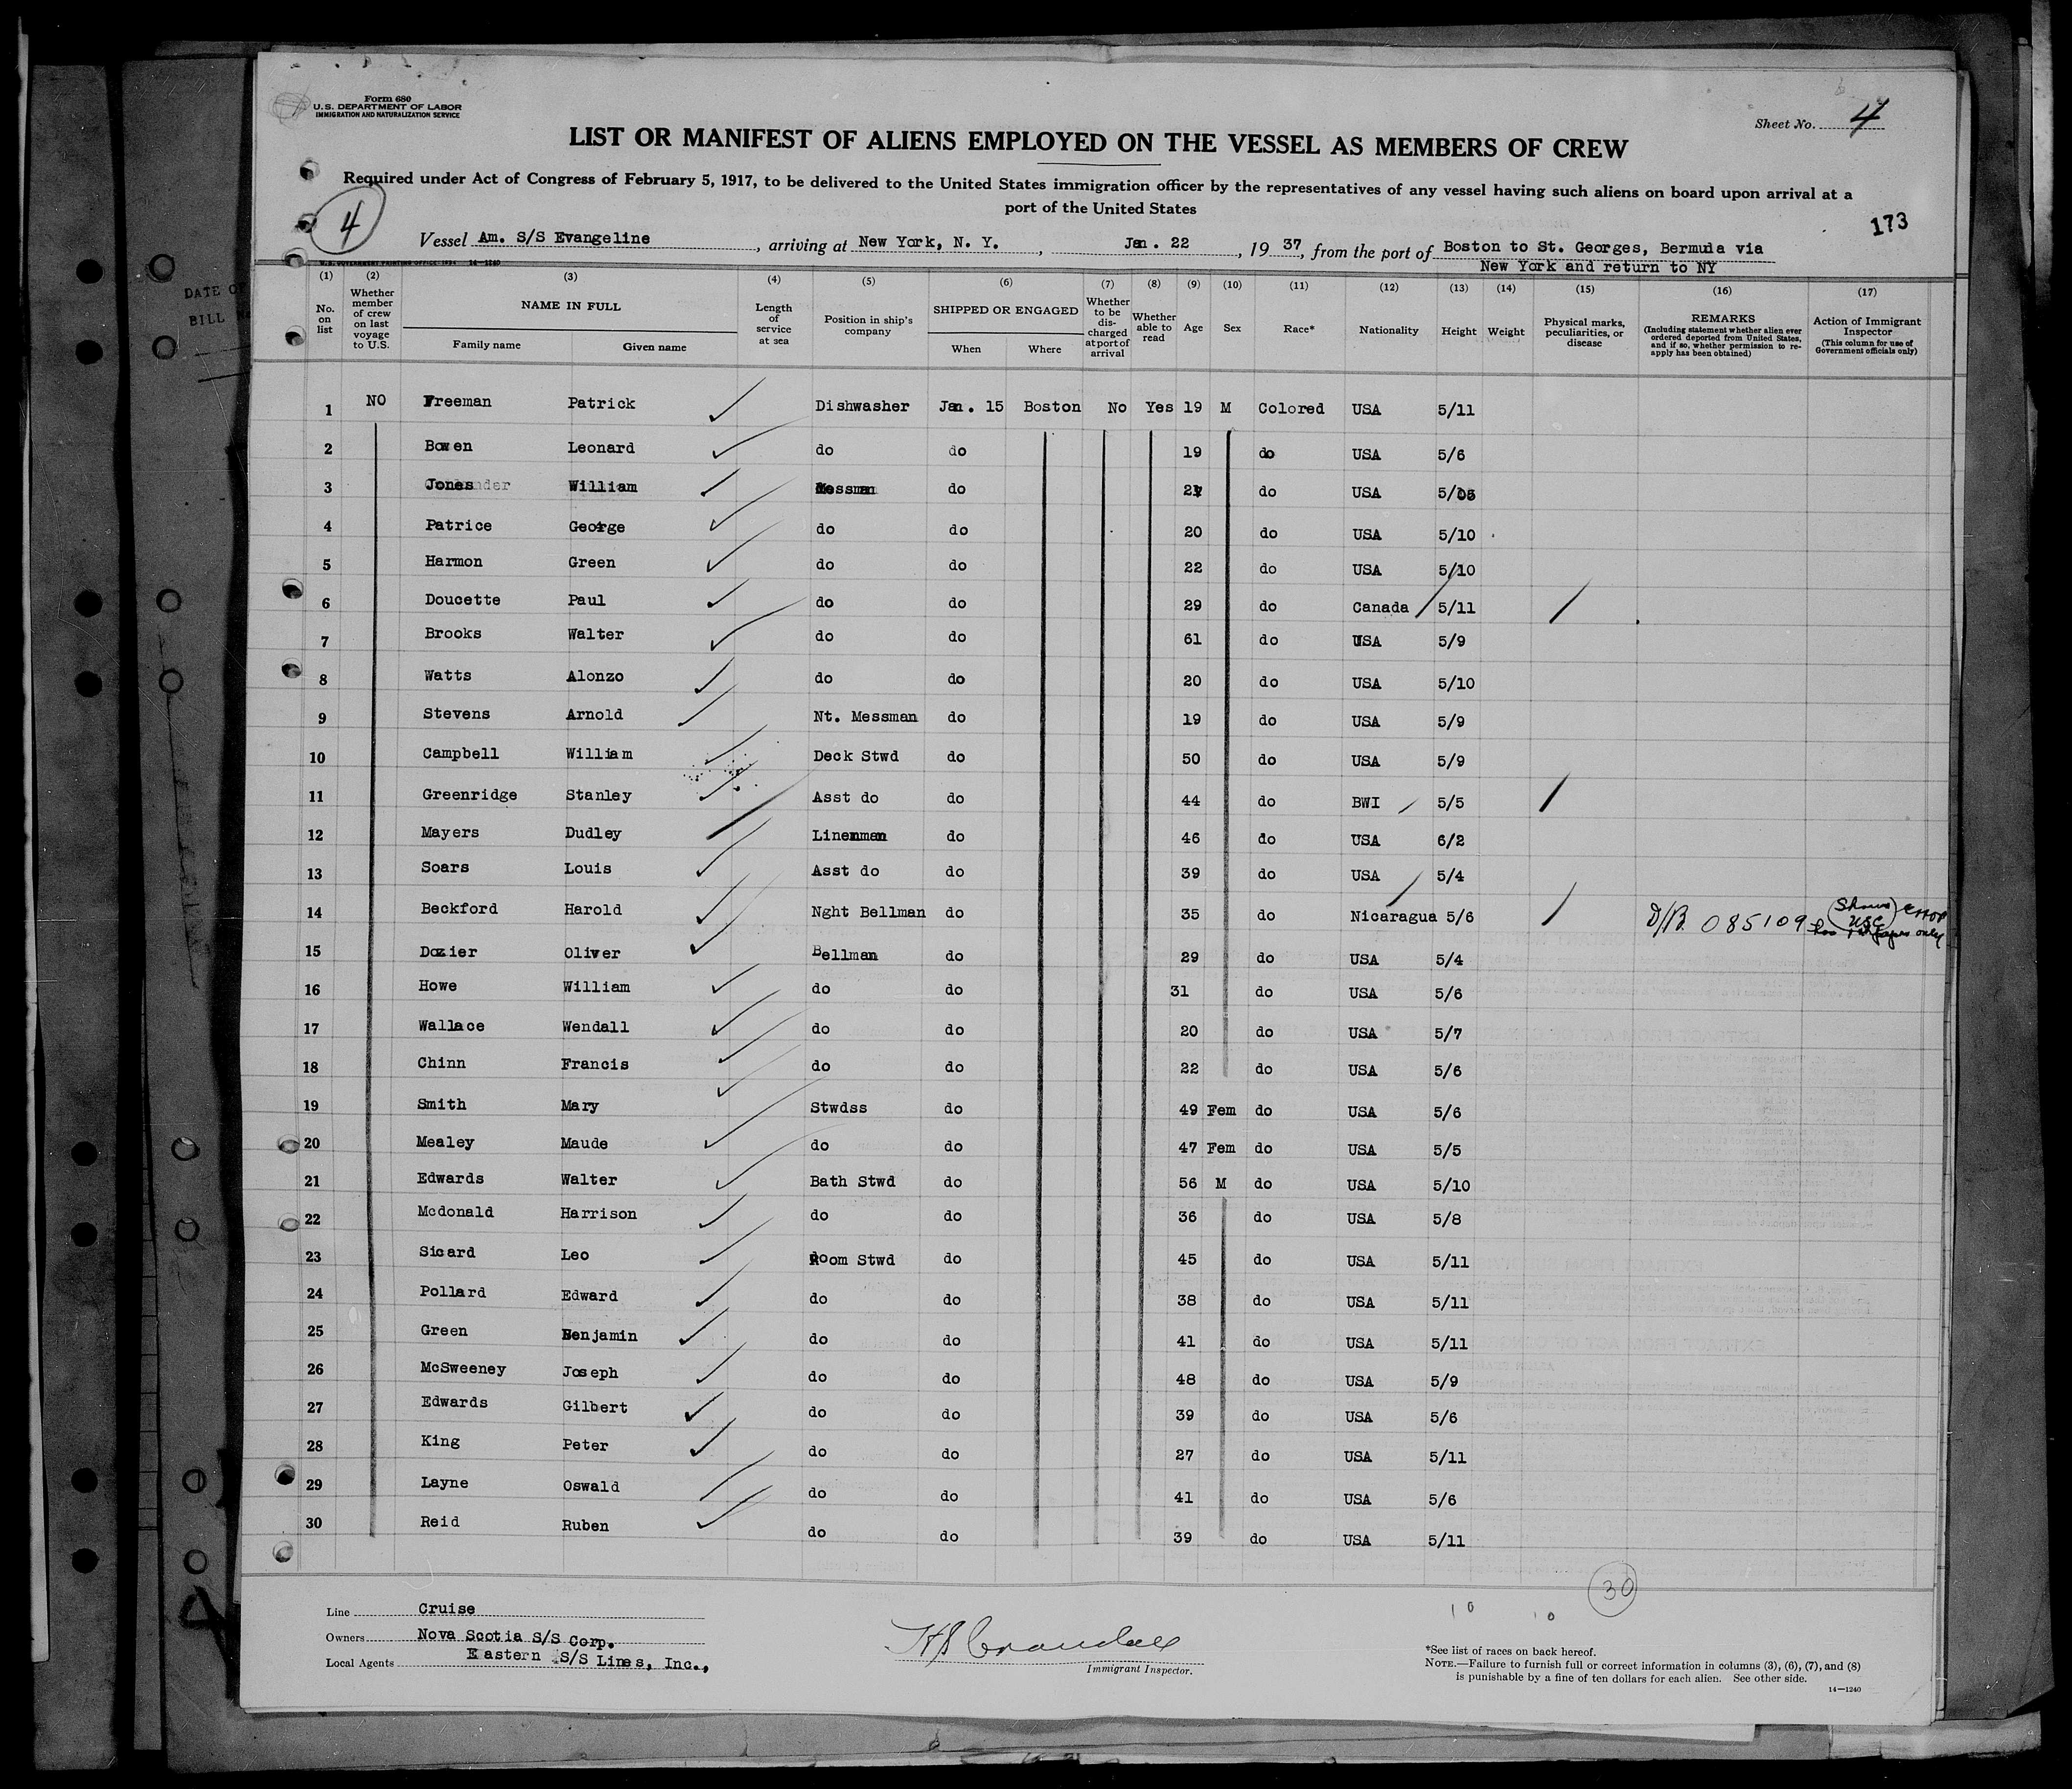 Form 680
U.S. DEPARTMENT OF LABOR
IMMIGRATION AND NATURALIZATION SERVICE
Sheet No. 4
LIST OR MANIFEST OF ALIENS EMPLOYED ON THE VESSEL AS MEMBERS OF CREW
Required under Act of Congress of February 5, 1917, to be delivered to the United States immigration officer by the representatives of any vessel having such aliens on board upon arrival at a
port of the United States
4
173
Vessel Am. S/S Evangeline, arriving at New York, N. Y., Jan. 22, 19 37, from the port of Boston to St. Georges, Bermuda via
New York and return to NY
U.S. GOVERNMENT PRINTING OFFICE: 1934 14—1240
DATE OF
BILL
(1) (2) (3) (4) (5) (6) (7) (8) (9) (10) (11) (12) (13) (14) (15) (16) (17)
No. on list
Whether member of crew on last voyage to U.S.
NAME IN FULL
Family name Given name
Length of service at sea
Position in ship's company
SHIPPED OR ENGAGED
When Where
Whether to be discharged at port of arrival
Whether able to read
Age
Sex
Race*
Nationality
Height
Weight
Physical marks, peculiarities, or disease
REMARKS
(Including statement whether alien ever ordered deported from United States, and if so, whether permission to reapply has been obtained)
Action of Immigrant Inspector
(This column for use of Government officials only)
1 NO Freeman Patrick Dishwasher Jan. 15 Boston No Yes 19 M Colored USA 5/11
2 Bowen Leonard do do 19 do USA 5/6
3 Jones William Messman do do USA
4 Patrice George do do 20 do USA 5/10
5 Harmon Green do do 22 do USA 5/10
6 Doucette Paul do do 29 do Canada 5/11
7 Brooks Walter do do 61 do USA 5/9
8 Watts Alonzo do do 20 do USA 5/10
9 Stevens Arnold Nt. Messman do 19 do USA 5/9
10 Campbell William Deck Stwd do 50 do USA 5/9
11 Greenridge Stanley Asst do do 44 do BWI 5/5
12 Mayers Dudley Linenman do 46 do USA 6/2
13 Soars Louis Asst do do 39 do USA 5/4
14 Beckford Harold Nght Bellman do 35 do Nicaragua 5/6 D/B. 085109 (Shows USC) error has 1st papers only
15 Dozier Oliver Bellman do 29 do USA 5/4
16 Howe William do do 31 do USA 5/6
17 Wallace Wendall do do 20 do USA 5/7
18 Chinn Francis do do 22 do USA 5/6
19 Smith Mary Stwdss do 49 Fem do USA 5/6
20 Mealey Maude do do 47 Fem do USA 5/5
21 Edwards Walter Bath Stwd do 56 M do USA 5/10
22 Mcdonald Harrison do do 36 do USA 5/8
23 Sicard Leo Room Stwd do 45 do USA 5/11
24 Pollard Edward do do 38 do USA 5/11
25 Green Benjamin do do 41 do USA 5/11
26 McSweeney Joseph do do 48 do USA 5/9
27 Edwards Gilbert do do 39 do USA 5/6
28 King Peter do do 27 do USA 5/11
29 Layne Oswald do do 41 do USA 5/6
30 Reid Ruben do do 39 do USA 5/11
30
10 10
Line Cruise
Owners Nova Scotia S/S Corp.
Local Agents Eastern S/S Lines, Inc.,
H B Crandall
Immigrant Inspector.
*See list of races on back hereof.
NOTE.—Failure to furnish full or correct information in columns (3), (6), (7), and (8)
is punishable by a fine of ten dollars for each alien. See other side.
14—1240